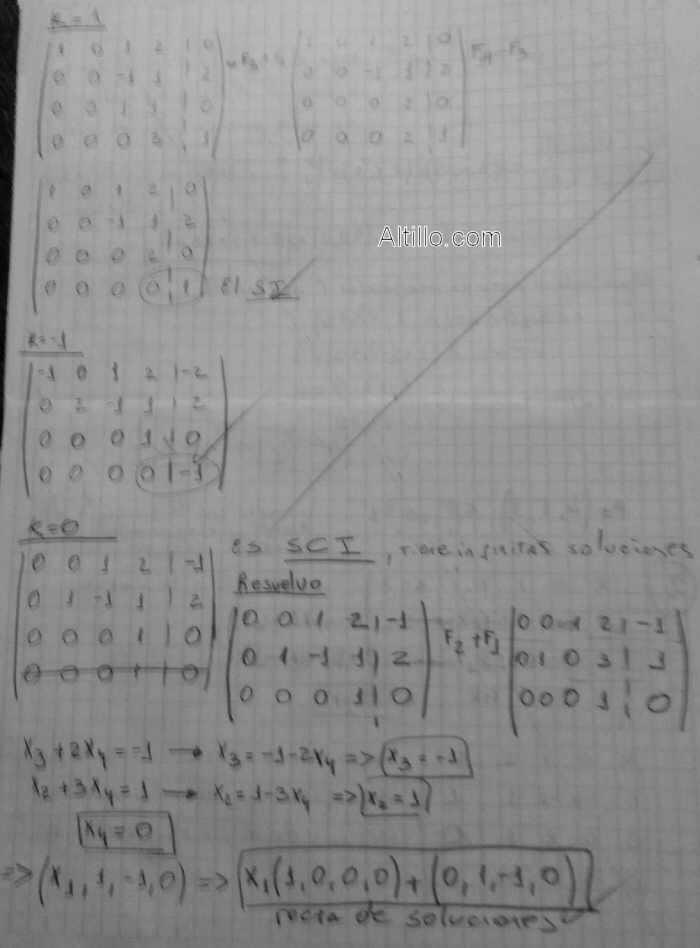 K=1
1 0 1 2 | 0
0 0 -1 1 | 2 F3+
0 0 1 1 | 0
0 0 0 2 | 1
1 0 1 2 | 0
0 0 -1 1 | 2
0 0 0 2 | 0
0 0 0 2 | 1
F4-F3
1 0 1 2 | 0
0 0 -1 1 | 2
0 0 0 2 | 0
0 0 0 0 | 1 SI
Altillo.com
K=-1
-1 0 1 2 | -2
0 2 -1 1 | 2
0 0 0 1 | 0
0 0 0 0 | -1
K=0
0 0 1 2 | -1
0 1 -1 1 | 2
0 0 0 1 | 0
0 0 0 1 | 0
es SCI, tiene infinitas soluciones
Resuelvo
0 0 1 2 | -1
0 1 -1 1 | 2
0 0 0 1 | 0
F2+F1
0 0 1 2 | -1
0 1 0 3 | 1
0 0 0 1 | 0
X3+2X4=-1 → X3=-1-2X4 => X3=-1
X2+3X4=1 → X2=1-3X4 => X2=1
X4=0
=> (X1, 1, -1, 0) => X1(1,0,0,0)+(0,1,-1,0)
recta de soluciones